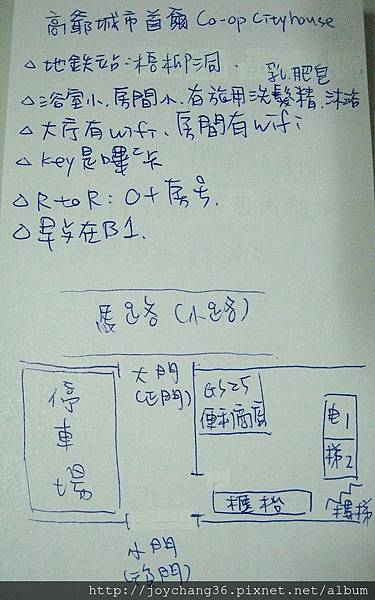 高爺城市首爾 Co-op cityhouse
△地鉄站:梧柳洞.
乳.肥皂
△浴室小.房間小.有旅用洗髮精.沐浴
△大厅有wifi.房間有wifi
△key是嗶卡
△R to R: 0+房号.
△早点在B1.
馬路(小路)
停車場
大門
(正門)
GS25
便利商店
电1
梯2
櫃枱
樓梯
小門
http://joychang36.pixnet.net/album